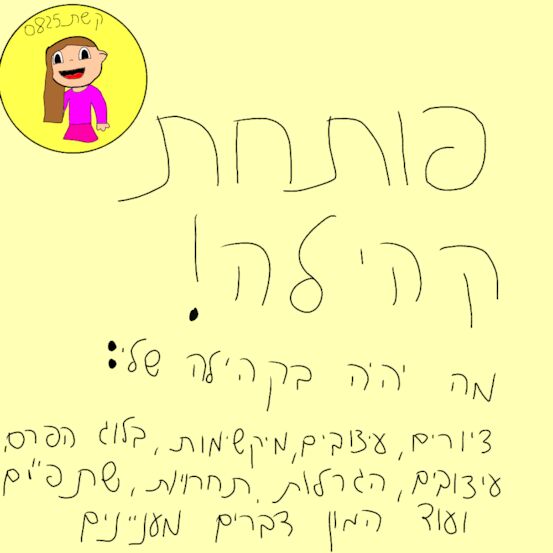 קשת_0825
פותחת
קהילה!
מה יהיה בקהילה שלי:
ציורים, עיצובים, מיקשימות, בלוג הפרס,
עיצובים, הגרלות, תחרויות, שת"פים
ועוד המון דברים מעניינים